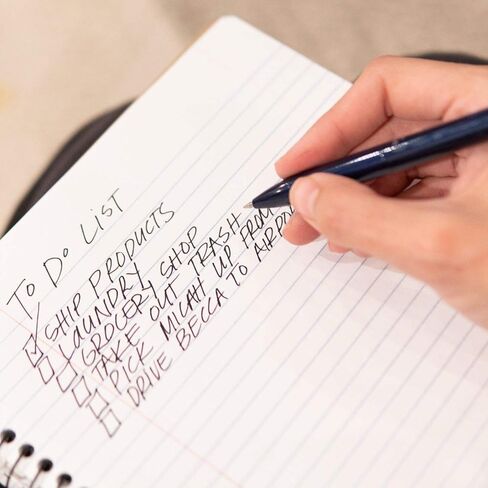 To Do List
SHIP PRODUCTS
LAUNDRY
GROCERY SHOP
TAKE OUT TRASH
PICK MICAH UP FROM
DRIVE BECCA TO AIRPORT